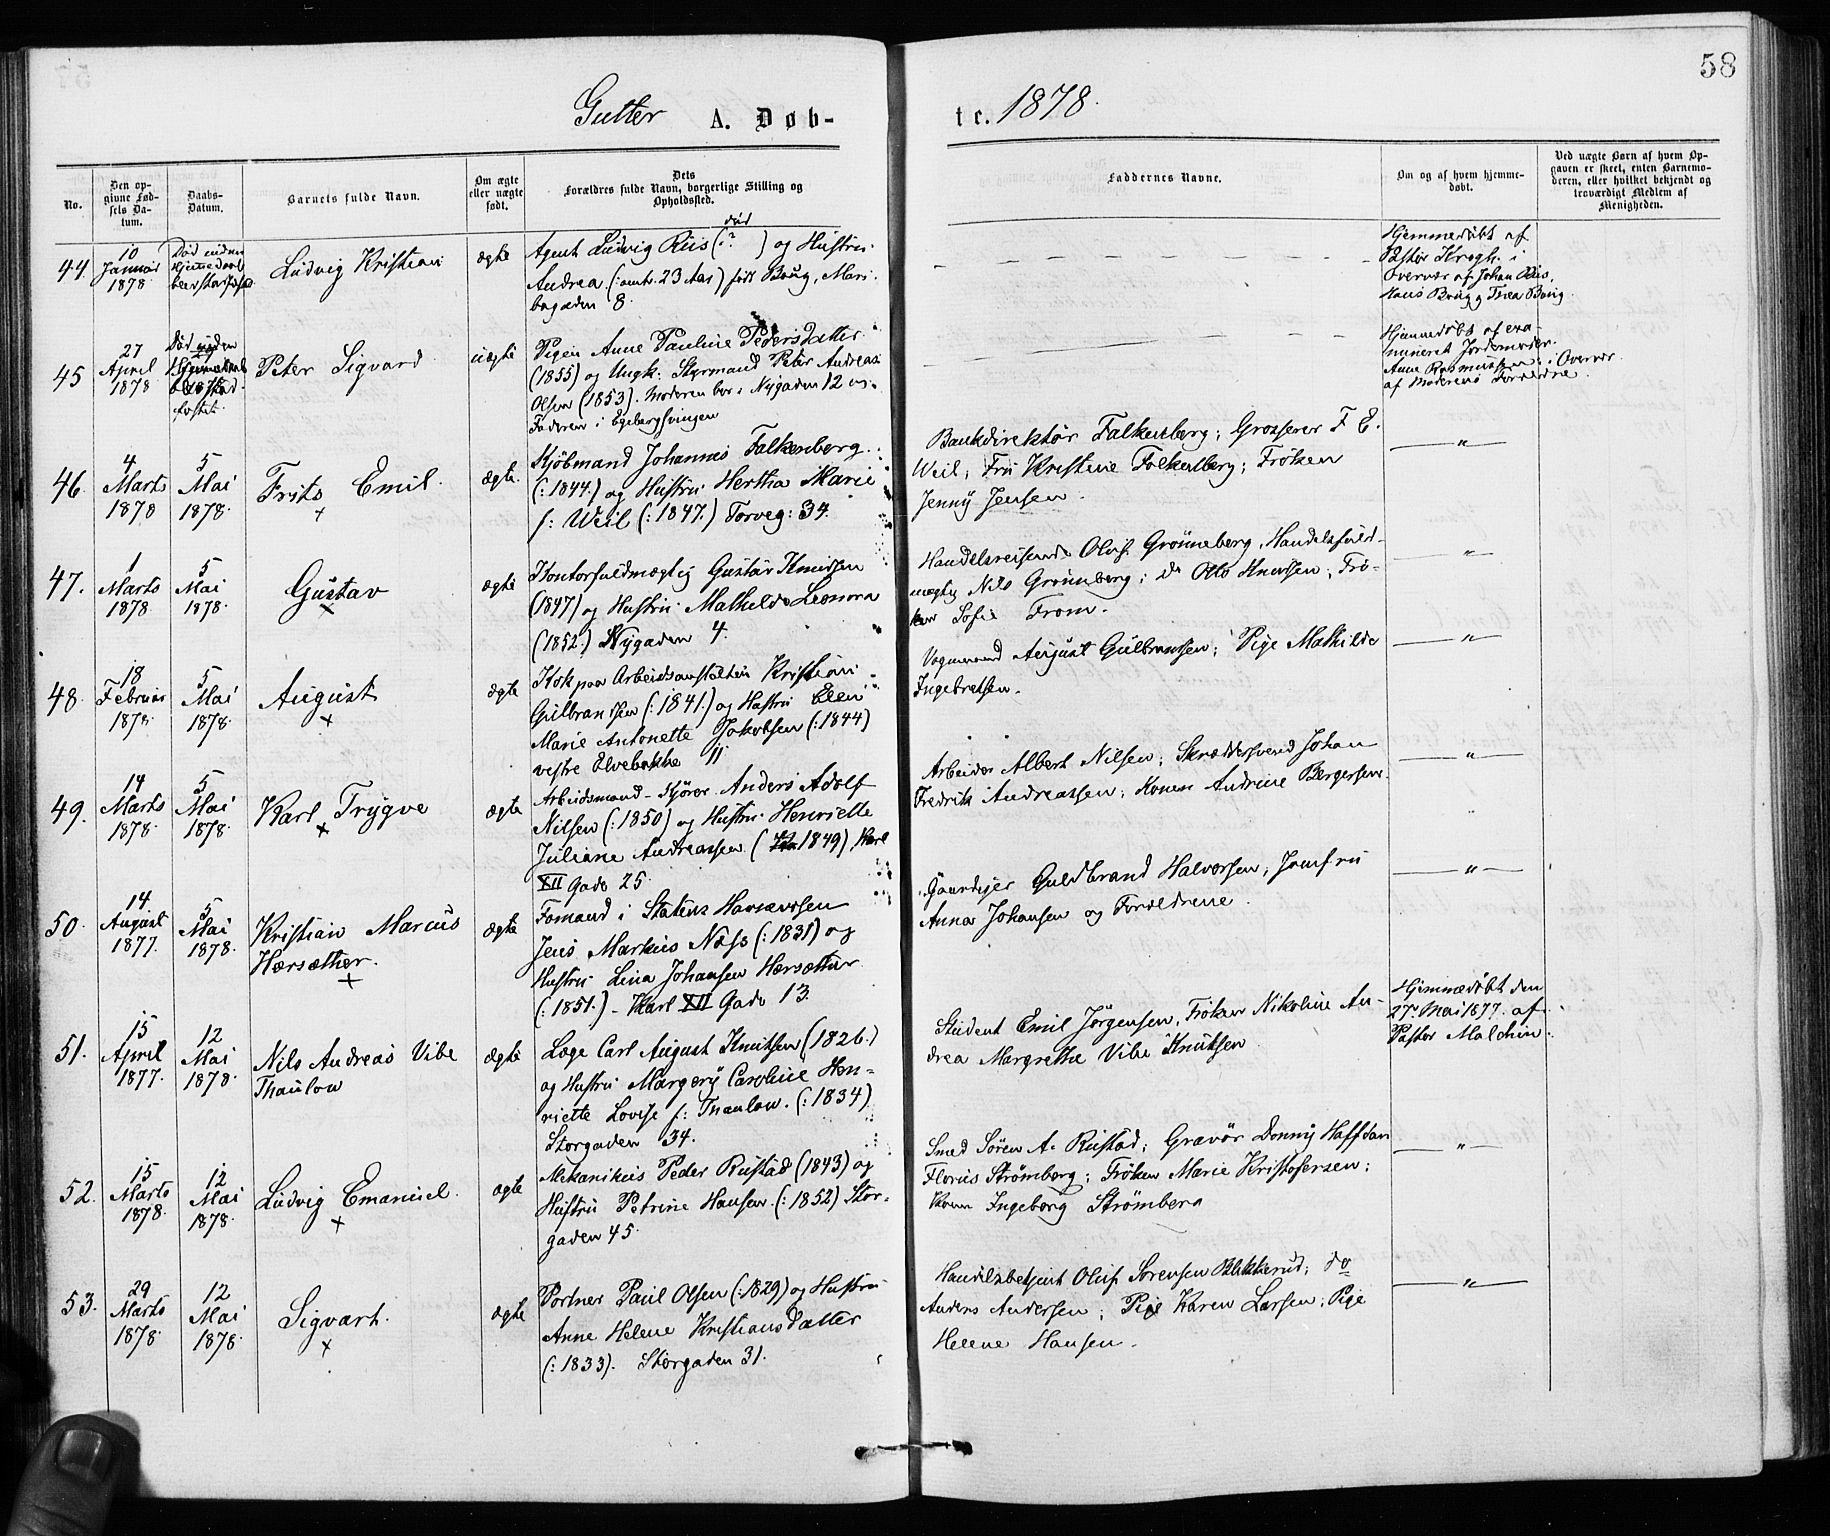 58
Gutter A. Døb-
te. 1878.
No.
Den op-
givne Fød-
sels Da-
tum.
Daabs-
Datum.
Barnets fulde Navn.
Om ægte
eller uægte
født.
Dets
Forældres fulde Navn, borgerlige Stilling og
Opholdssted.
Faddernes Navne.
Om og af hvem hjemme-
døbt.
Ved uægte Børn af hvem Op-
gaven er skeet, enten Barnemo-
deren, eller hvilket bekjendt og
troværdigt Medlem af
Menigheden.
44
10
Januar
1878
Død uden
Ludvig Kristian
ægte
død
Agent Ludvig Riis (:? ) og Hustru
Andrea (: omtr. 23 Aar) født Boug, Mari-
bogaden 8.
Hjemmedøbt af
Pastor Krogh i
Overvær af Johan Riis,
Hans Boug og Thea Boug.
45
27
April
1878
Død uden
Peter Sigvard
uægte
Pigen Anne Pauline Pedersdatter
(1855) og Ungk. Styrmand Peter Andreas
Olsen (1853). Moderen bor i Nygaden 12 og
Faderen i Egebergsvingen
Hjemmedøbt af exa-
mineret Jordemoder
Anne Rasmussen i Overvær
af Moderens Forældre.
46.
4
Marts
1878
5
Mai
1878.
Frits Emil.
+
ægte.
Kjøbmand Johannes Falkenberg
(:1844.) og Hustru Hertha Marie
f: Weil (:1847.) Torveg: 34.
Bankdirektør Falkenberg; Grosserer F. E.
Weil; Fru Kristine Falkenberg; Frøken
Jenny Jensen.
— " —
47.
1
Marts
1878
5
Mai
1878.
Gustav
+
ægte
Kontorfuldmægtig Gustav Knudsen
(1847) og Hustru Mathilde Leonora
(1852.) Nygaden 4.
Handelsreisende Oluf Grønneberg, Handelsfuld-
mægtig Nils Grønneberg; do Otto Knudsen; Frø-
ken Sofie From.
— " —
48.
18
Februar
1878.
5
Mai
1878.
August
+
ægte
Kok paa Arbeidsanstalten Kristian
Gulbrandsen (:1841.) og Hustru Elen
Marie Antonette Jakobsen (:1844)
vestre Elvebakke 11
Vognmand August Gulbrandsen; Pige Mathilde
Ingebretsen.
— " —
49.
14
Marts
1878.
5
Mai
1878.
Karl Trygve
+
ægte
Arbeidsmand-Kjører Anders Adolf
Nilsen (:1850) og Hustru Henriette
Juliane Andreassen (1849) Karl
XII Gade 25.
Arbeider Albert Nilsen; Skræddersvend Johan
Fredrik Andreassen; Konen Andrine Bergersen.
— " —
50.
14
August
1877.
5
Mai
1878.
Kristian Marcus
Hærsæther.
+
ægte
Formand i Statens Havnevæsen
Jens Markus Næss (:1831) og
Hustru Lina Johansen Hærsæther
(:1851.) - Karl XII Gade 13.
Gaardeier Guldbrand Halvorsen; Jomfru
Anna Johansen og Forældrene.
— " —
51.
15
April
1877.
12
Mai
1878.
Nils Andreas Vibe
Thaulow
ægte
Læge Carl August Knutsen (1826.)
og Hustru Margery Caroline Hen-
riette Lovise f: Thaulow. (:1834)
Storgaden 34.
Student Emil Jørgensen, Frøken Nikoline An-
drea Margrethe Vibe Knutsen
Hjemmedøbt den
27de Mai 1877. af
Pastor Malchin.
52.
15
Marts
1878.
12
Mai
1878.
Ludvig Emanuel.
+
ægte
Mekanikus Peder Rustad (1843) og
Hustru Petrine Hansen. (:1852) Stor-
gaden 45.
Smed Søren A. Rustad; Gravør Donny Haffdan
Florus Strømberg; Frøken Marie Kristofersen;
Konen Ingeborg Strømberg
— " —
53.
29
Marts
1878.
12
Mai
1878.
Sigvart.
+
ægte
Portner Paul Olsen (:1829) og Hustru
Anne Helene Kristiansdatter
(:1833). Storgaden 31.
Handelsbetjent Oluf Sørensen Blikkerud; do
Anders Andersen; Pige Karen Larsen; Pige
Helene Hansen.
— " —